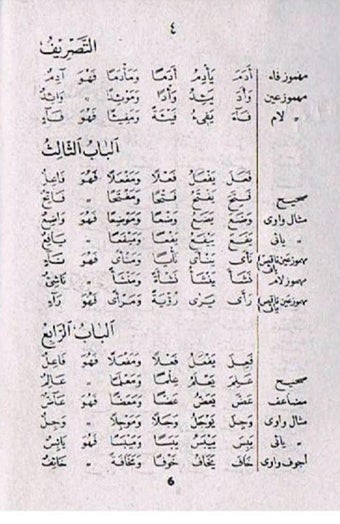 ٤
التَّصْرِيفُ
مهموز فاء أَدَمَ يَأْدِمُ أَدَمًا وَمَأْدَمًا فَهُوَ آدِمٌ
مهموز عين وَأَدَ يَئِدُ وَأْدًا وَمَوْئِدًا » وَائِدٌ
» لام فَآءَ يَفِىءُ فَيْئَةً وَمَفِيئًا فَهُوَ فَآءٍ
اَلْبَابُ الثَّالِثُ
فَعَلَ يَفْعَلُ فَعْلًا وَمَفْعَلًا فَهُوَ فَاعِلٌ
صحيح فَتَحَ يَفْتَحُ فَتْحًا وَمَفْتَحًا » فَاتِحٌ
مثال واوى وَضَعَ يَضَعُ وَضْعًا وَمَوْضِعًا فَهُوَ وَاضِعٌ
» يائى يَفَعَ يَيْفَعُ يَفْعًا وَمَيْفَعًا » يَافِعٌ
مهموز عين ناقص يائى نَأَى يَنْأَى نَأْيًا وَمَنْأًى فَهُوَ نَآءٍ
مهموز لام نَشَأَ يَنْشَأُ نَشْأَةً وَمَنْشَأً » نَاشِئٌ
مهموز عين ناقص يائى رَأَى يَرَى رُؤْيَةً وَمَرْأًى فَهُوَ رَآءٍ
اَلْبَابُ الرَّابِعُ
فَعِلَ يَفْعَلُ فَعْلًا وَمَفْعَلًا فَهُوَ فَاعِلٌ
صحيح عَلِمَ يَعْلَمُ عِلْمًا وَمَعْلَمًا » عَالِمٌ
مضاعف عَضَّ يَعَضُّ عَضًّا وَمَعَضًّا فَهُوَ عَآضٌّ
مثال واوى وَجِلَ يَوْجَلُ وَجَلًا وَمَوْجِلًا » وَجِلٌ
» يائى يَبِسَ يَيْبَسُ يَبَسًا وَمَيْبَسًا فَهُوَ يَابِسٌ
أجوف واوى خَافَ يَخَافُ خَوْفًا وَمَخَافَةً » خَائِفٌ
6